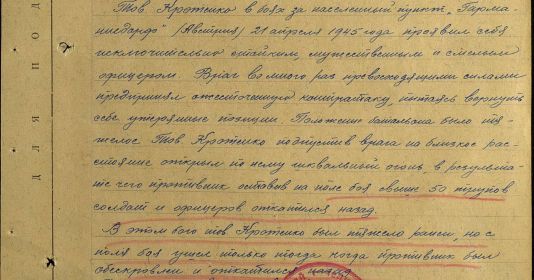 Тов. Кротенко в боях за населенный пункт „Гарма-
нисдорф" (Австрия) 21 апреля 1945 года проявил себя
исключительно стойким, мужественным и смелым
офицером. Враг во много раз превосходящими силами
предпринял ожесточенную контратаку пытаясь вернуть
себе утерянные позиции. Положение батальона было тя-
желое. Тов Кротенко подпустив врага на близкое рас-
стояние открыл по нему шквальный огонь, в результа-
те чего противник оставив на поле боя свыше 50 трупов
солдат и офицеров откатился назад.
В этом бою тов Кротенко был тяжело ранен, но с
поля боя ушел только тогда когда противник был
обескровлен и откатился назад.
ДЛЯ ПОД